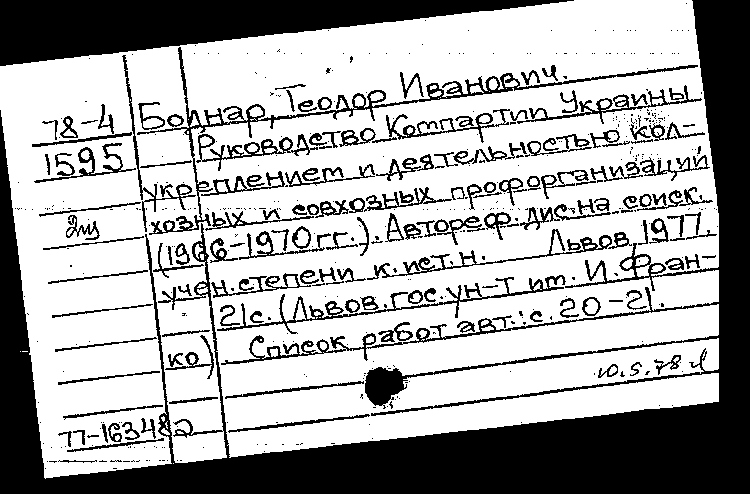 78-4
1595
Боднар, Теодор Иванович.
Руководство Компартии Украины
укреплением и деятельностью кол-
хозных и совхозных профорганизаций
(1966-1970гг.). Автореф. дис. на соиск.
учен. степени к. ист. н. Львов, 1977.
21с. (Львов. гос. ун-т им. И. Фран-
ко). Список работ авт.: с. 20-21.
10.5.78
77-16348а